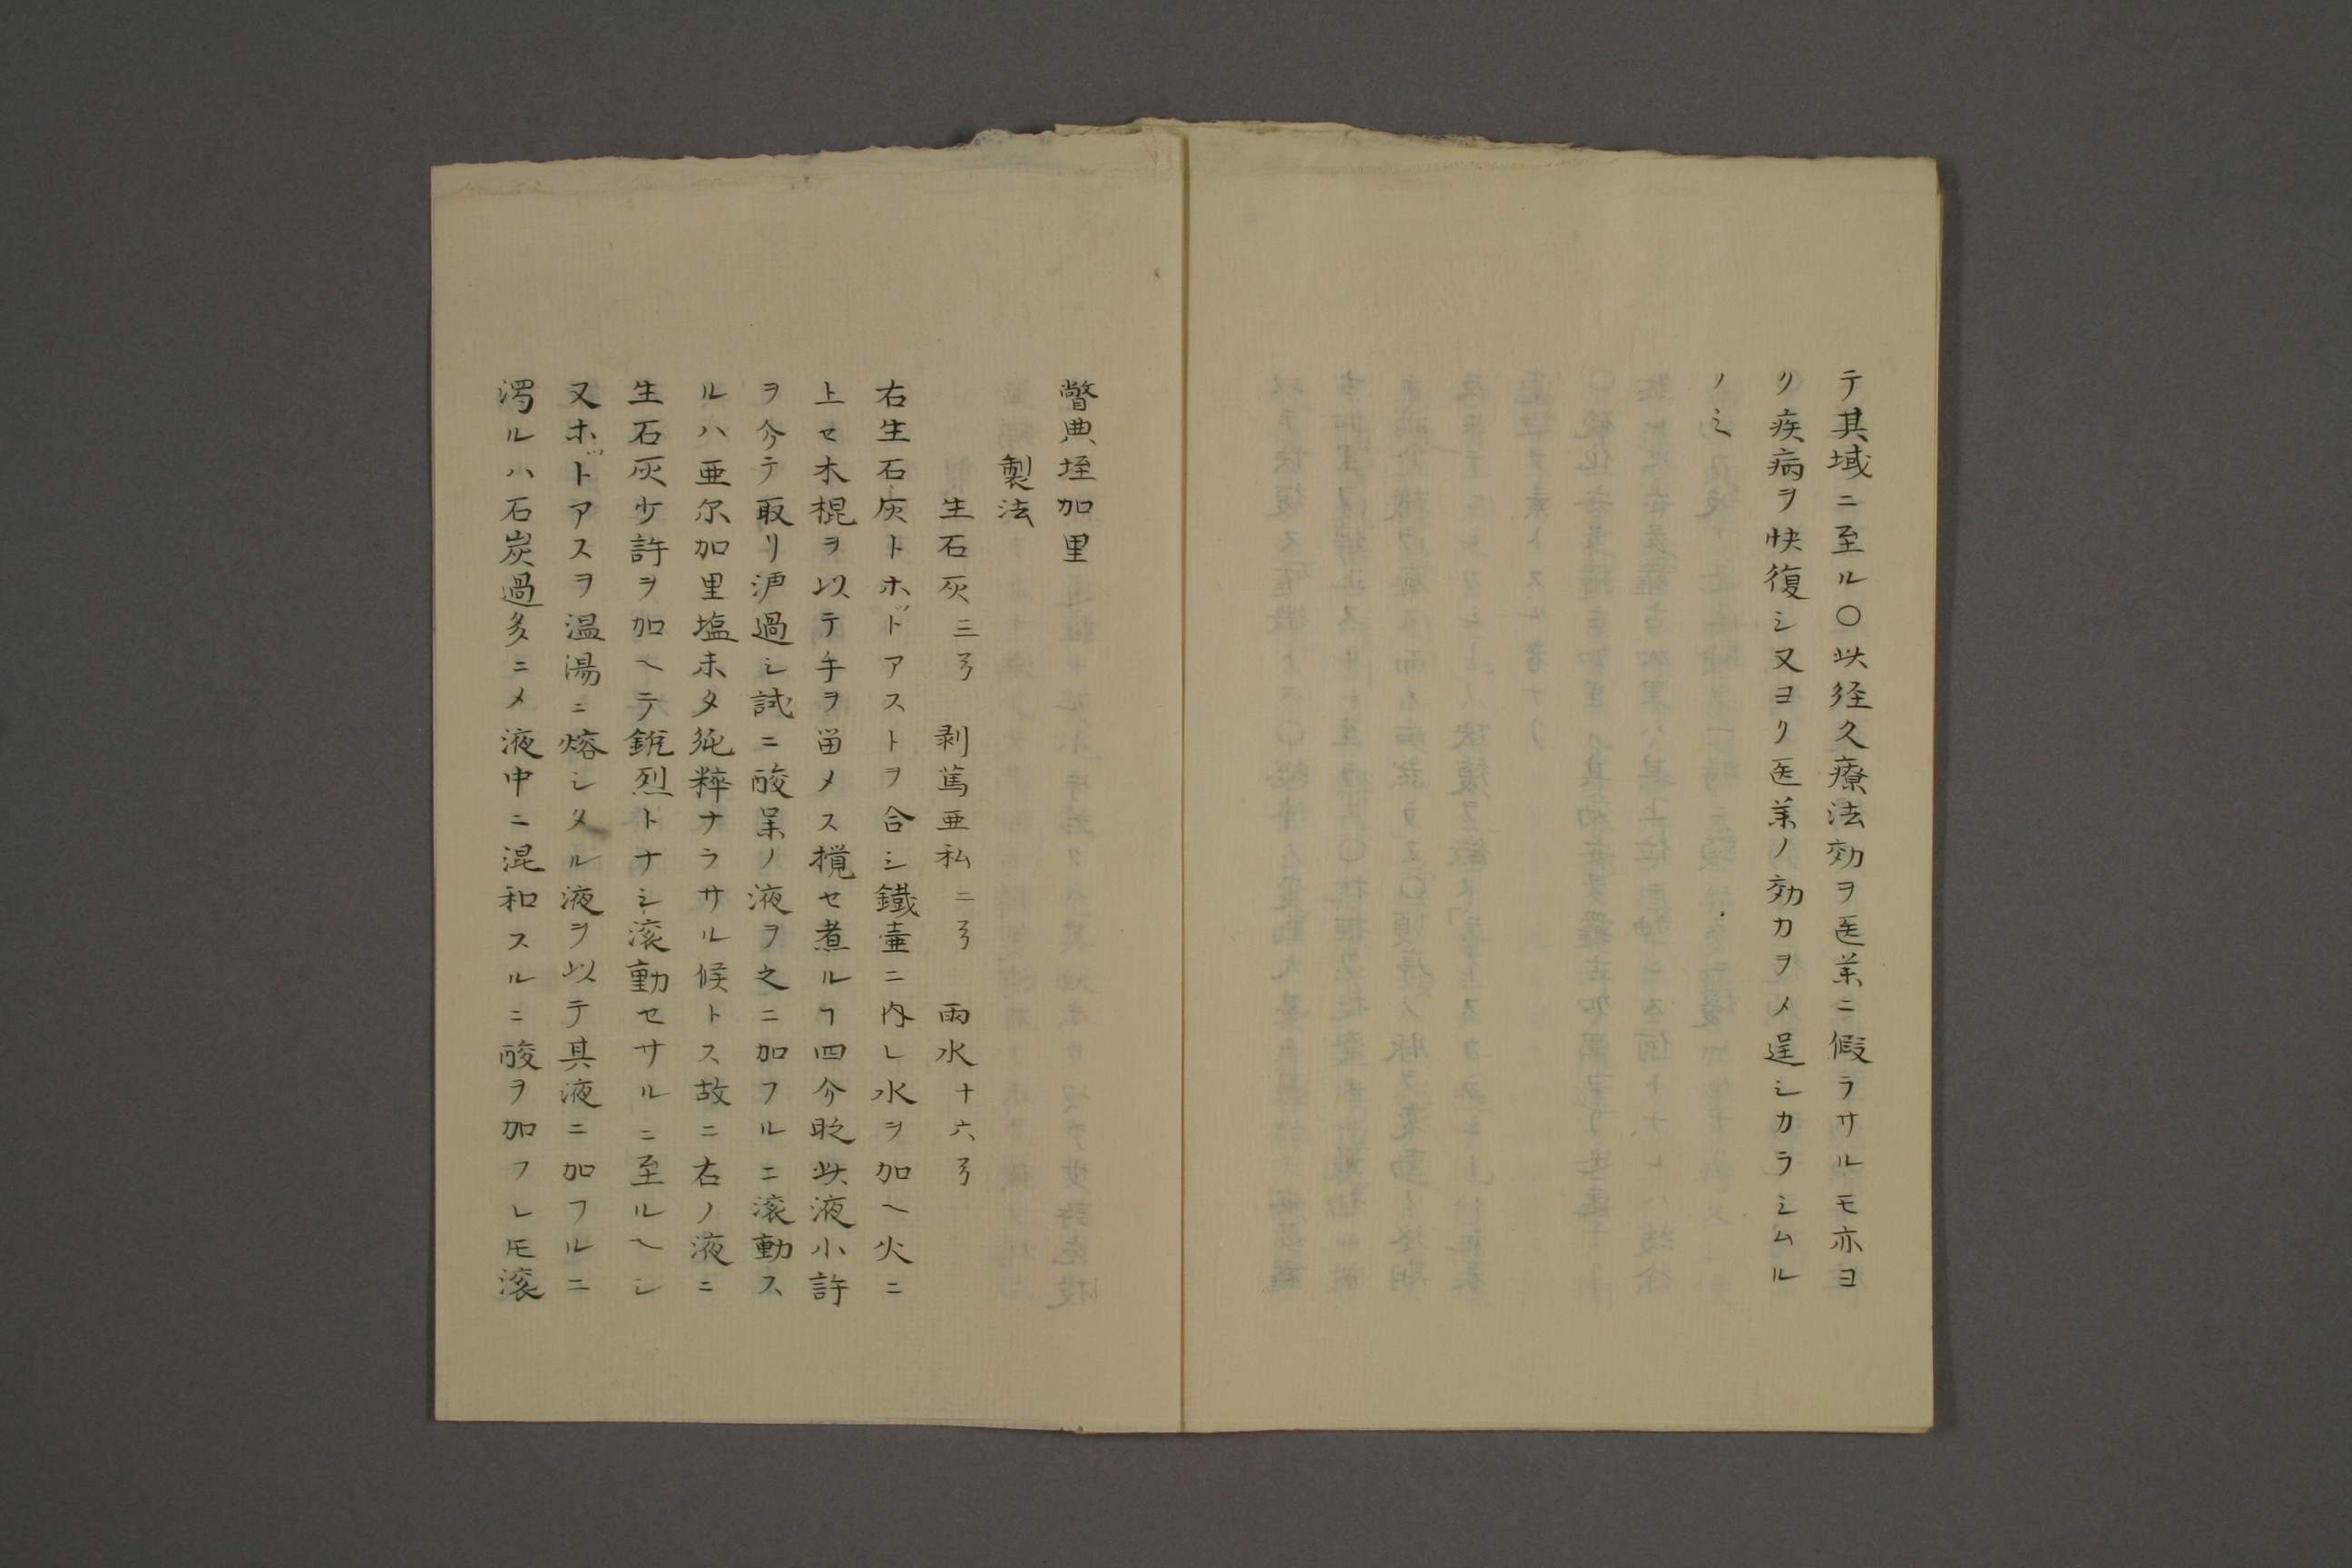 テ其域ニ至ル〇此経久療法効ヲ医薬ニ假ラサルモ亦ヨ
リ疾病ヲ快復シ又ヨリ医薬ノ効力ヲメ逞シカラシムル
ノミ
瞥典垤加里
製法
生石灰三弓 剥篤亜私二弓 雨水十六弓
右生石灰トホッドアストヲ合シ鐵壷ニ内レ水ヲ加ヘ火ニ
上セ木棍ヲ以テ手ヲ畄メス攪セ煮ルヿ四分眇此液小許
ヲ分テ取リ泸過シ試ニ酸某ノ液ヲ之ニ加フルニ滚動ス
ルハ亜尓加里塩未タ純粋ナラサル候トス故ニ右ノ液ニ
生石灰少許ヲ加ヘテ鋭烈トナシ滚動セサルニ至ルヘシ
又ホッドアスヲ温湯ニ熔シタル液ヲ以テ其液ニ加フルニ
濁ルハ石炭過多ニメ液中ニ混和スルニ酸ヲ加フレ𪜈滚